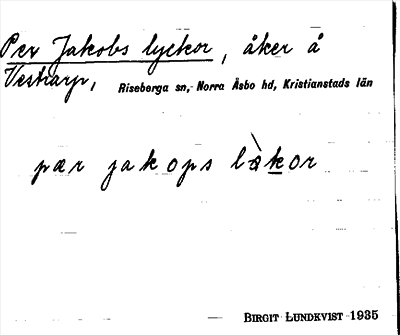 Per Jakobs lyckor, åker å
Vestrarp, Riseberga sn, Norra Åsbo hd, Kristianstads län
pær jakops lækor
BIRGIT LUNDKVIST 1935